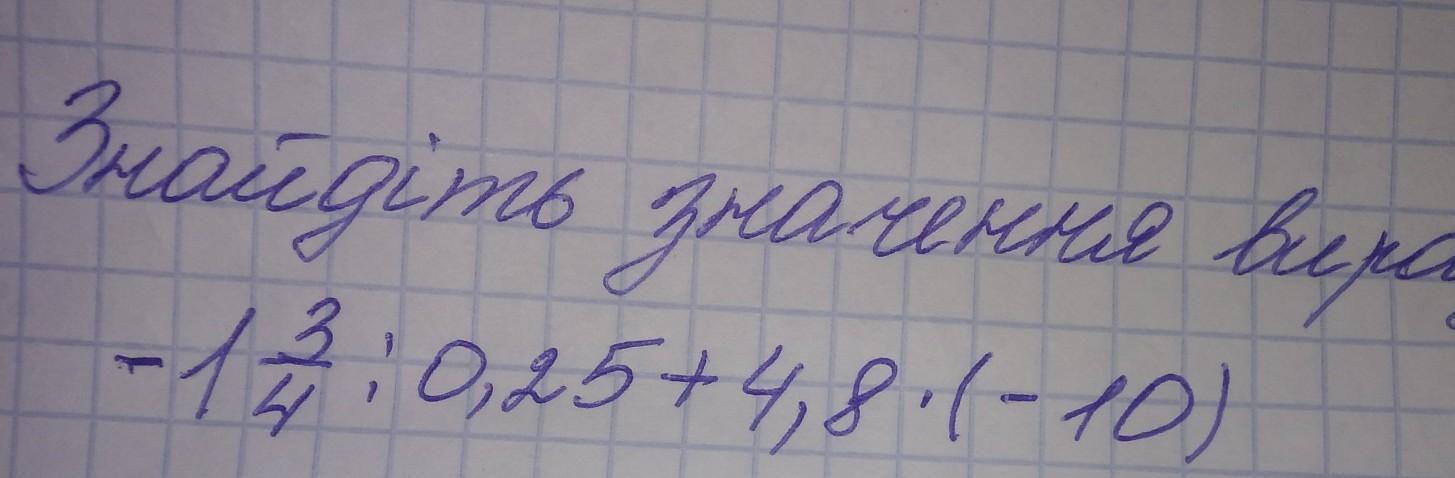 Знайдіть значення вира
-1 3/4 : 0,25 + 4,8 · (-10)